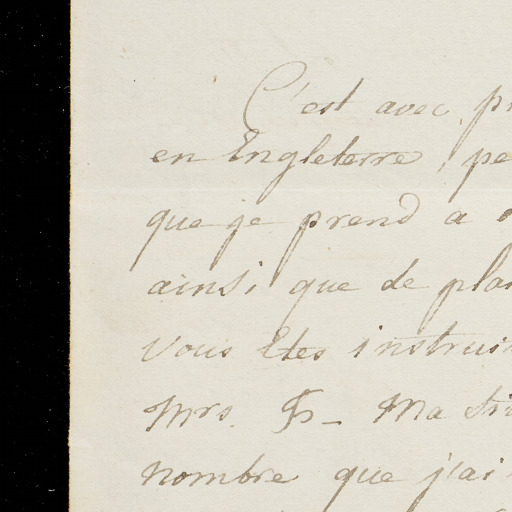 C'est avec
en Engleterre, pe
que je prend a
ainsi que de plai
vous êtes instrui
Mrs. Fr- Ma
nombre que j'ai